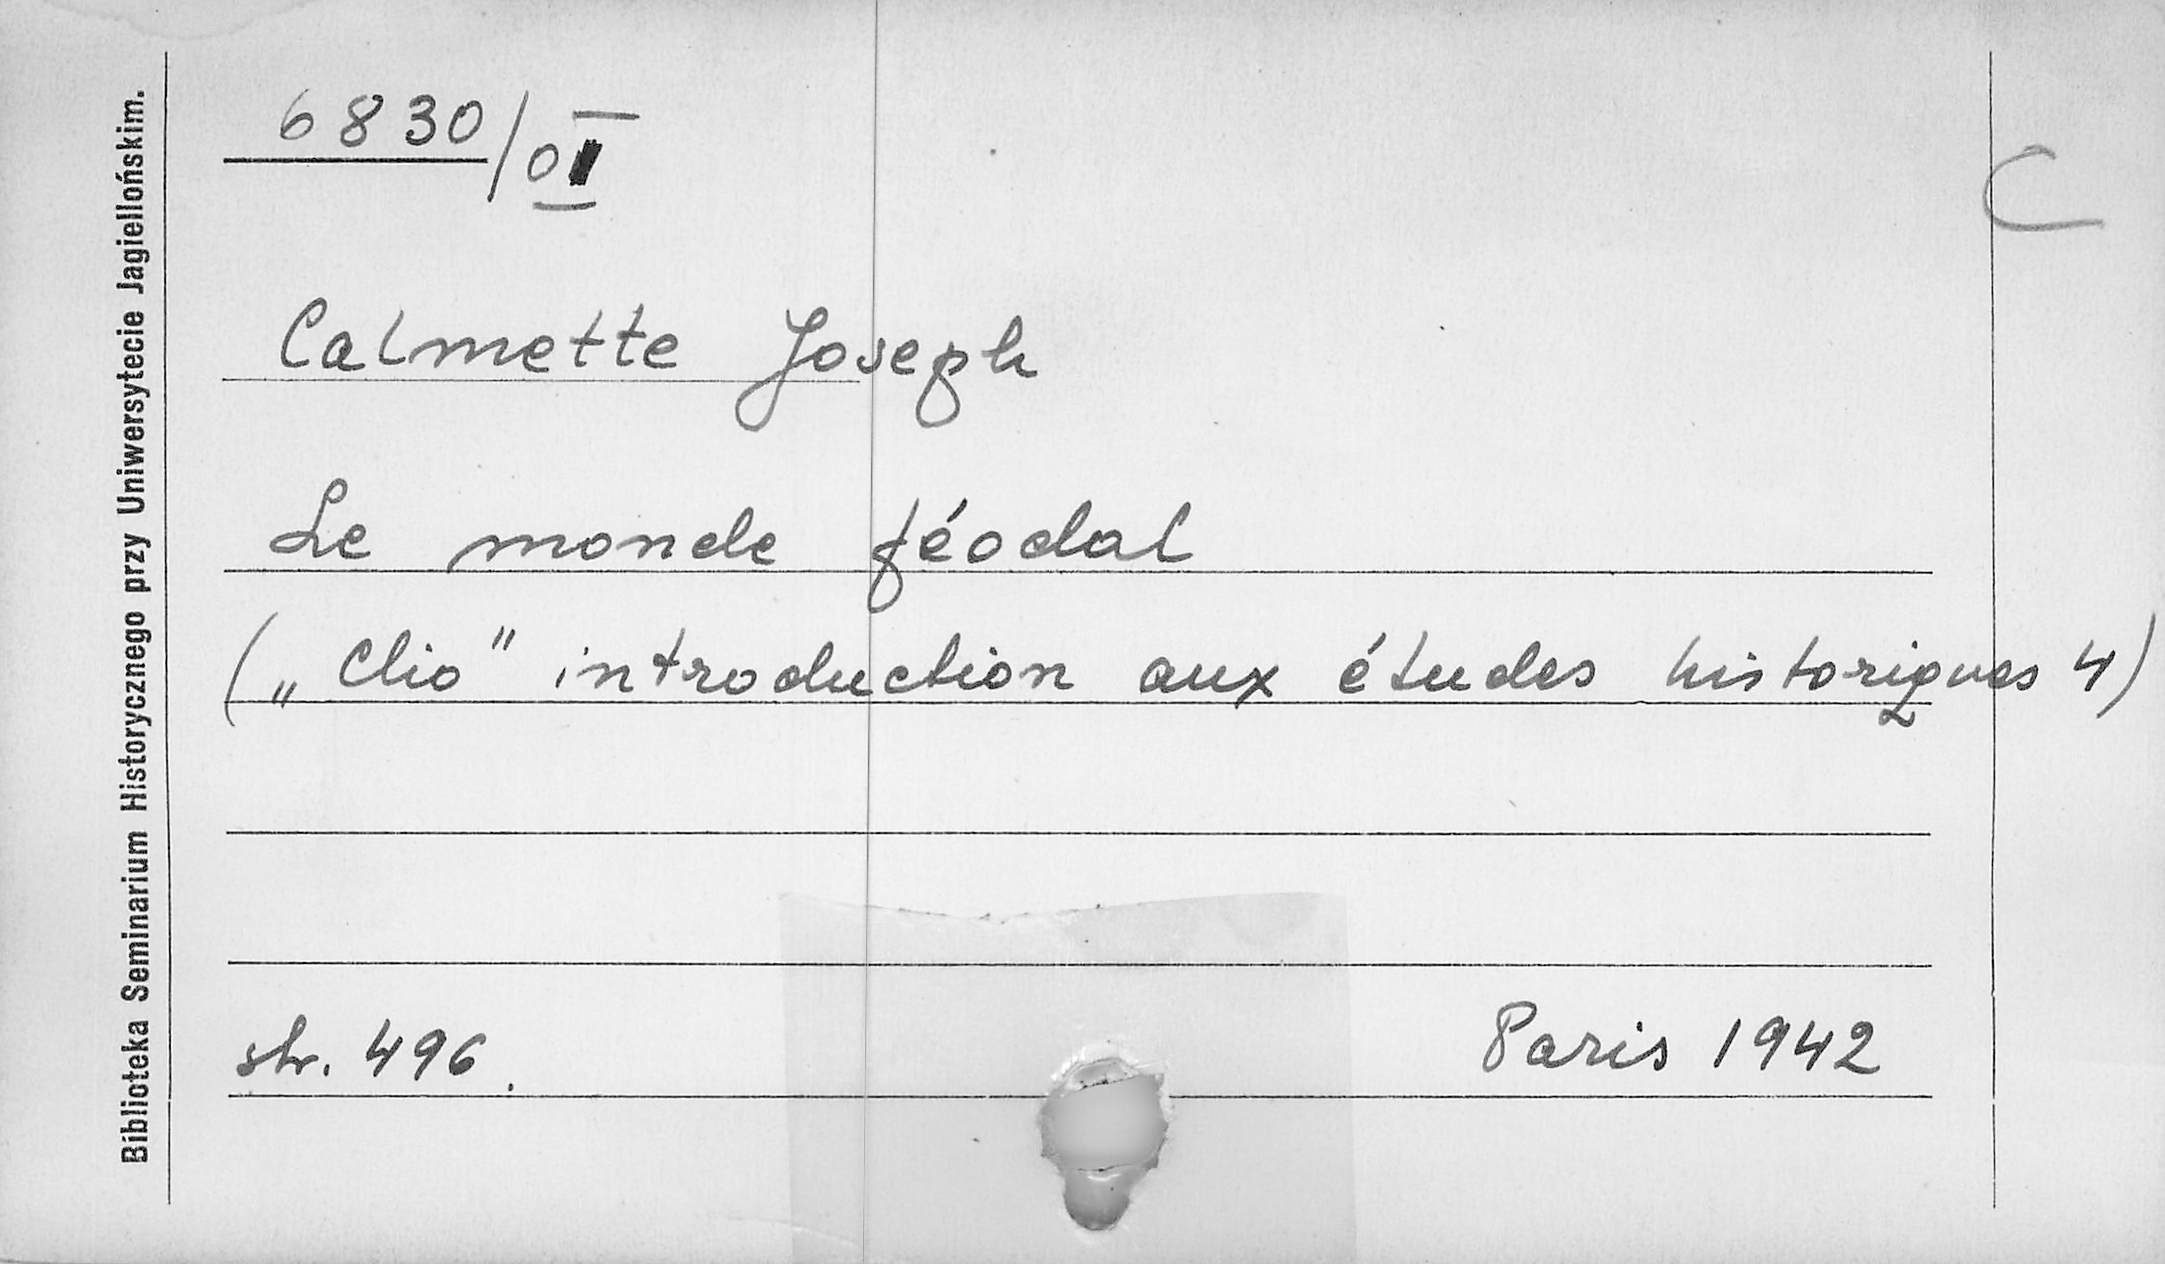 6830/0I
C
Calmette Joseph
Le monde féodal
(„Clio" introduction aux études historiques 4)
str. 496.
Paris 1942
Biblioteka Seminarium Historycznego przy Uniwersytecie Jagiellońskim.